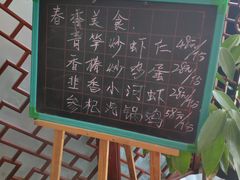 春季美食
青笋炒虾仁 48元/份
香椿炒鸡蛋 28元/份
韭香小河虾 28元/份
参杞汽锅鸡 58元/份